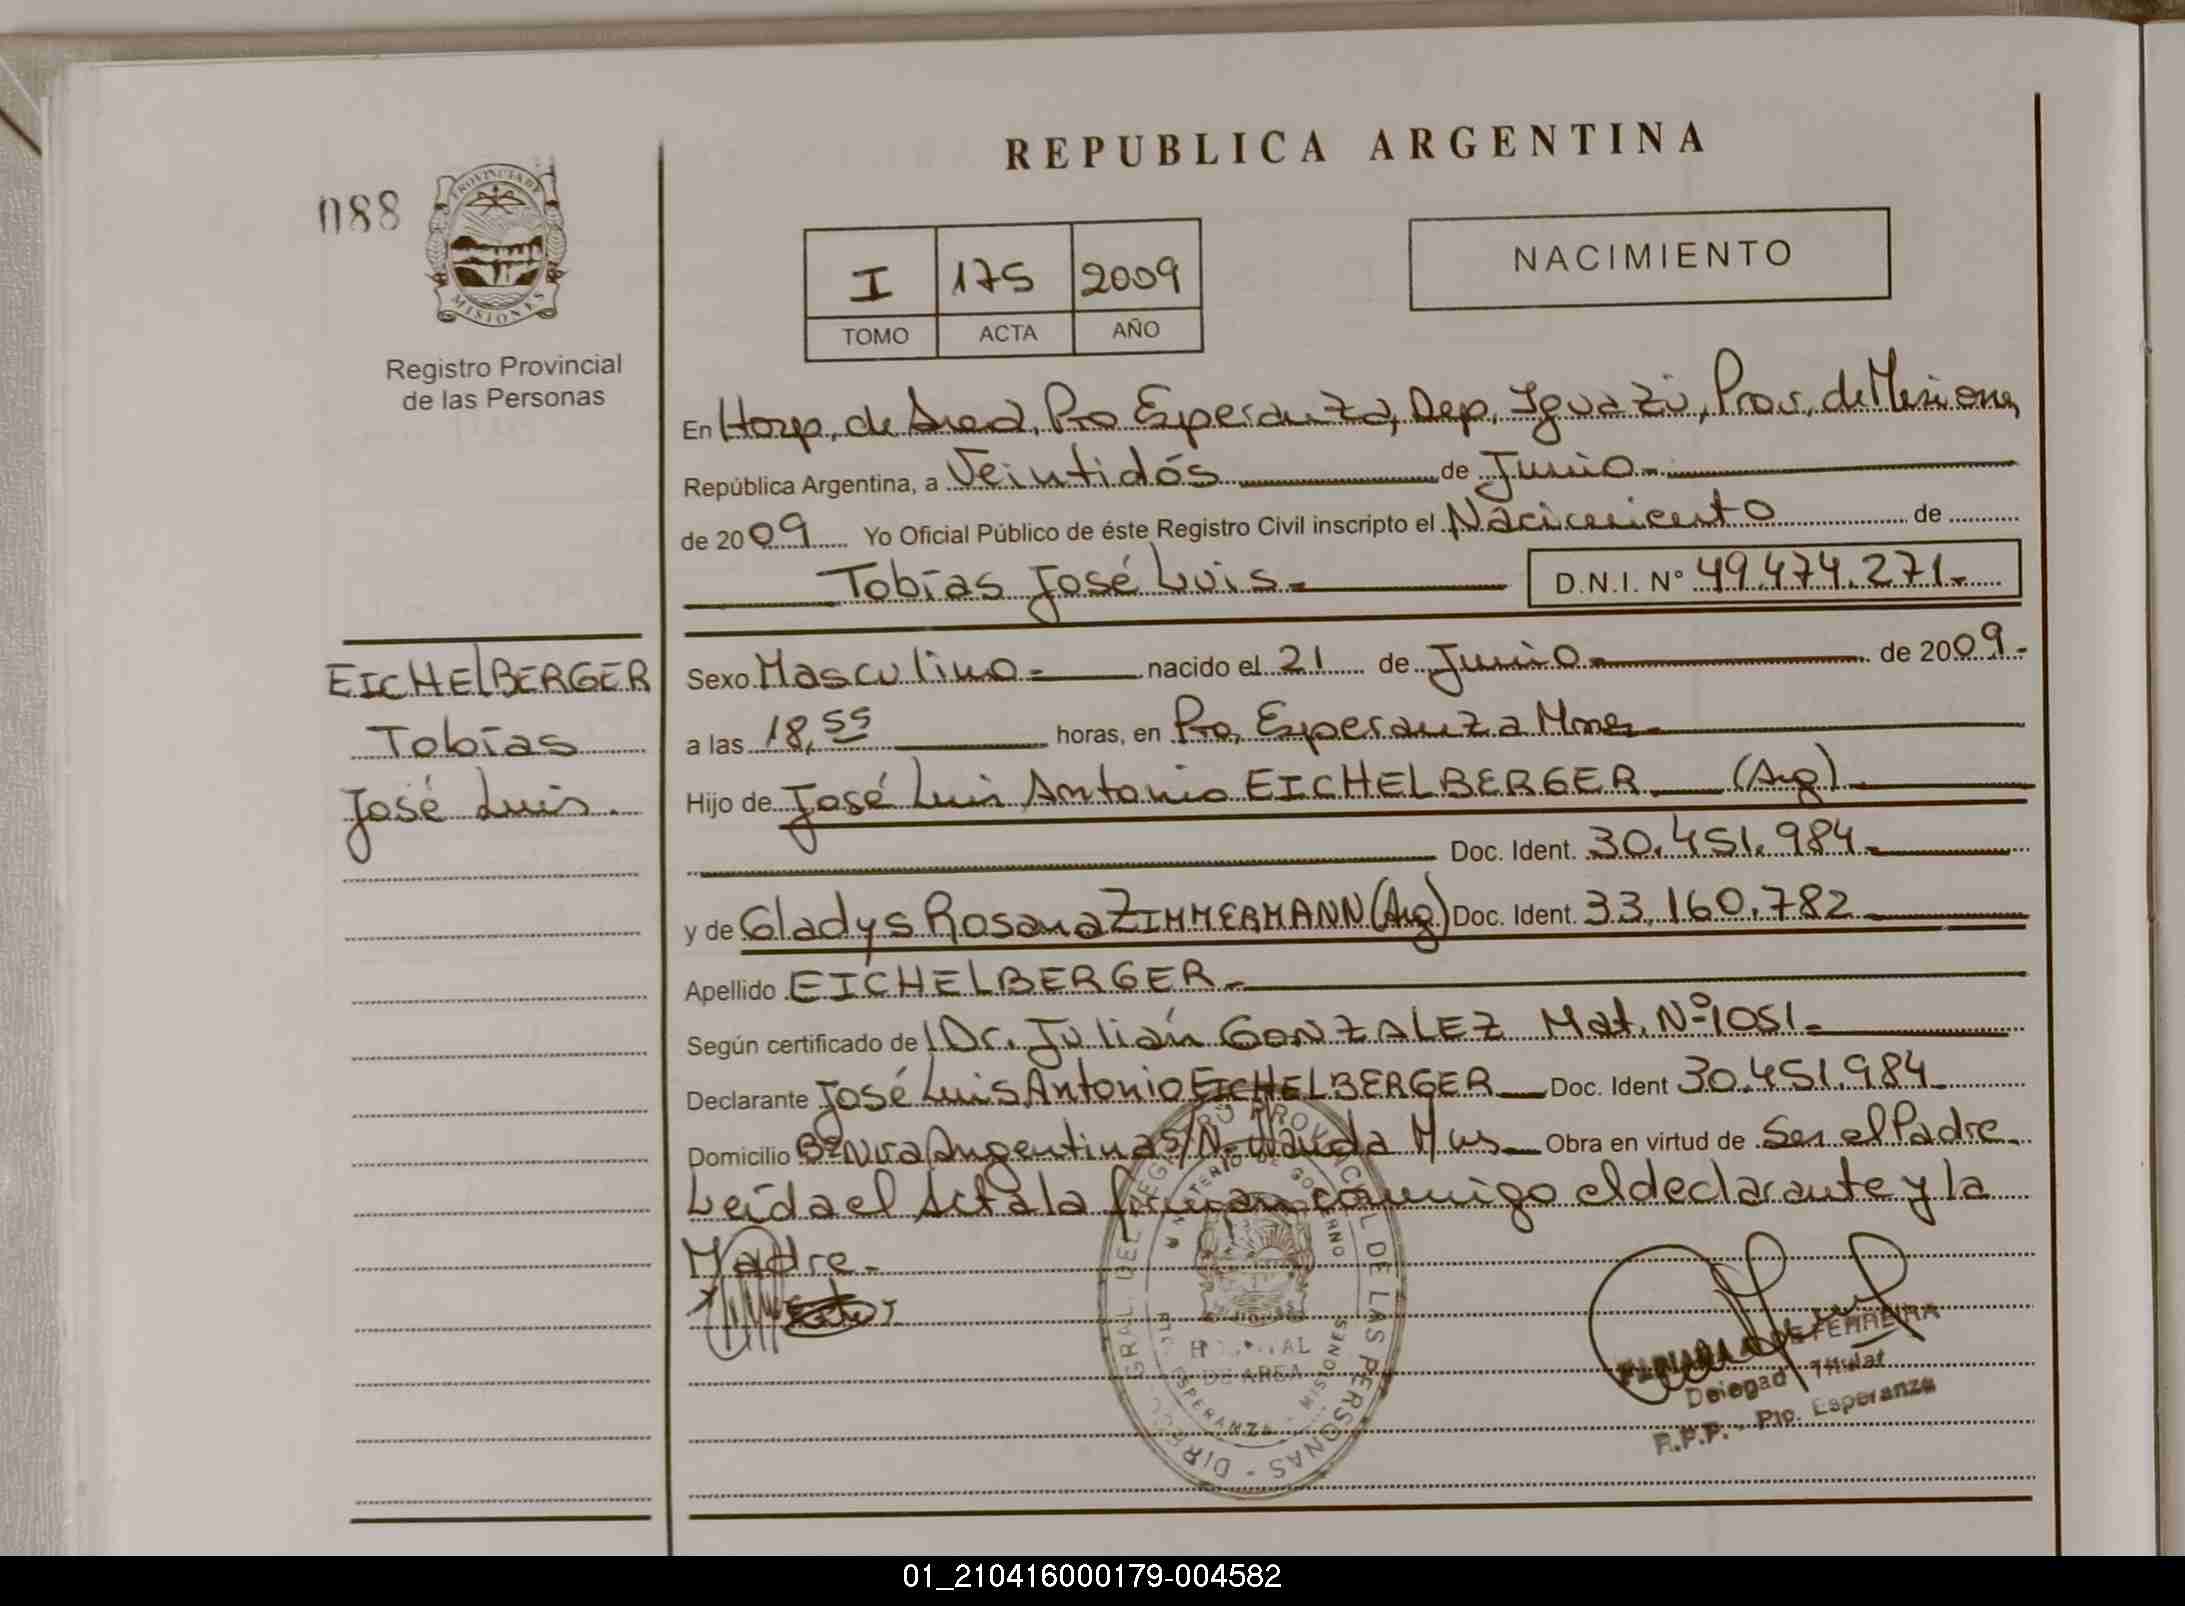 REPUBLICA ARGENTINA
088
PROVINCIA DE
MISIONES
Registro Provincial
de las Personas
I 175 2009
TOMO ACTA AÑO
NACIMIENTO
En Hosp. de Area, Pto Esperanza, Dep. Iguazú, Prov. de Misiones
República Argentina, a Veintidós de Junio.-
de 2009 Yo Oficial Público de éste Registro Civil inscripto el Nacimiento de
Tobías José Luis.- D.N.I. N° 49.474.271.-
EICHELBERGER
Tobías
José Luis.
Sexo Masculino.- nacido el 21 de Junio.- de 2009.-
a las 18,55 horas, en Pto, Esperanza Mnes.-
Hijo de José Luis Antonio EICHELBERGER (Arg)
Doc. Ident. 30.451.984.-
y de Gladys Rosana ZIMMERMANN (Arg) Doc. Ident. 33.160.782
Apellido EICHELBERGER.-
Según certificado de Dr. Julián GONZALEZ Mat. Nº 1051.-
Declarante José Luis Antonio EICHELBERGER Doc. Ident 30.451.984
Domicilio Bº Ntra Argentina s/N- Wanda Mns. Obra en virtud de Ser el Padre.
Leída el Acta la firman conmigo el declarante y la
Madre.-
DIRECC. GRAL. DEL REGISTRO PROVINCIAL DE LAS PERSONAS
MINISTERIO DE GOBIERNO
HOSPITAL
DE AREA
ESPERANZA - MISIONES
DE FERREIRA
Delegad Titular
R.P.P. - Pto. Esperanza
01_210416000179-004582